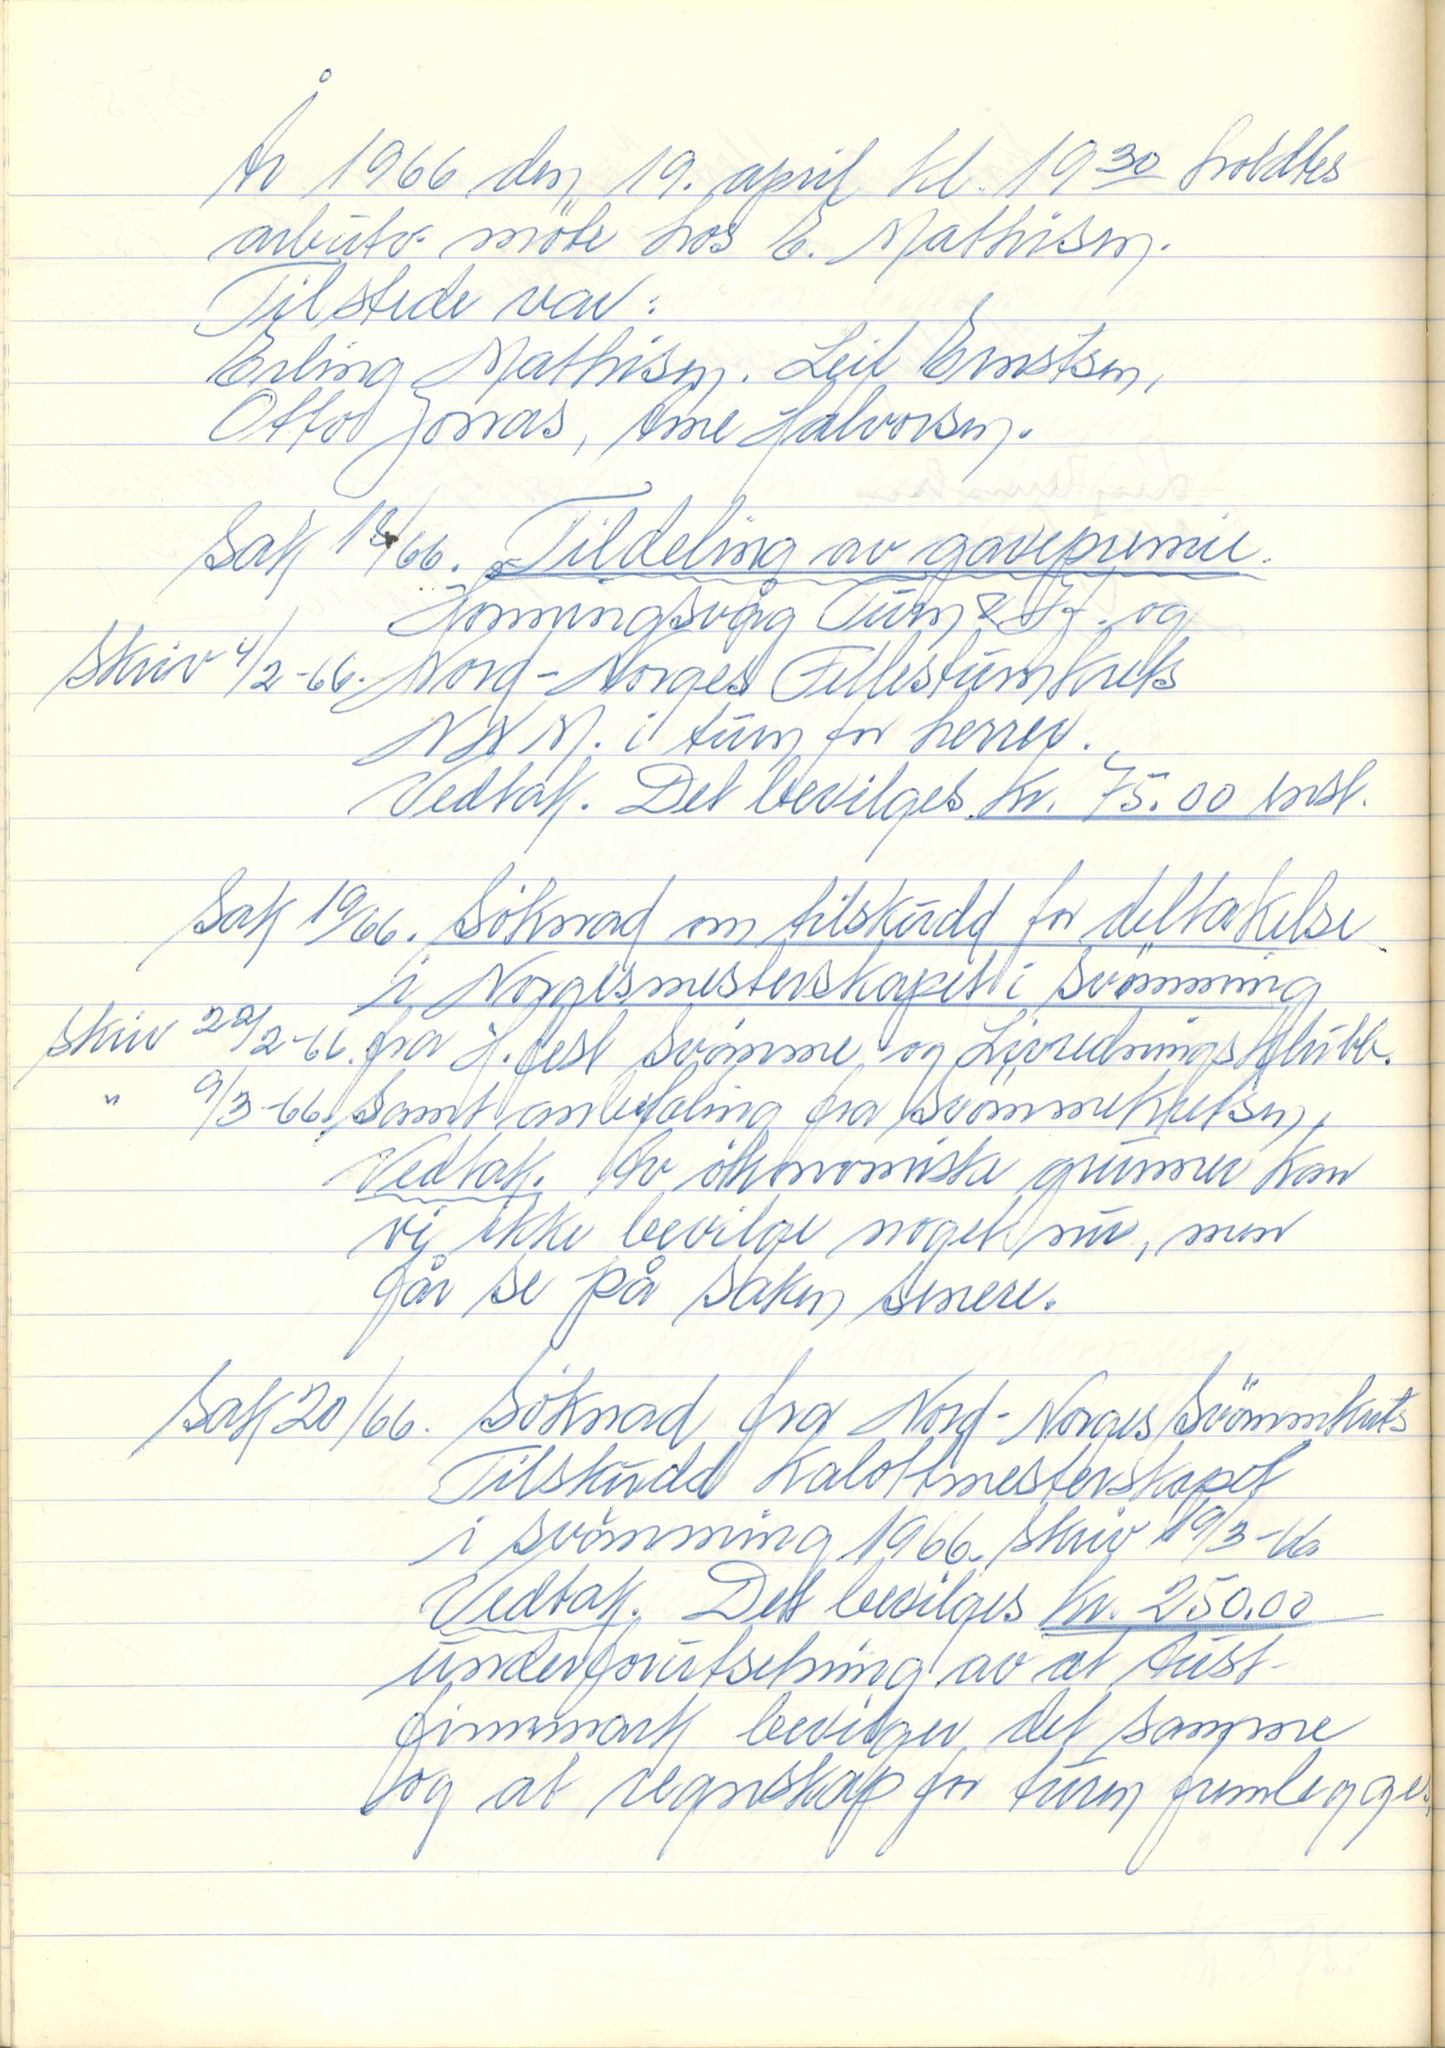 År 1966 den 19. april kl. 19 30 holdtes
arbutv. möte hos E. Mathisen.
Tilstede var:
Erling Mathisen. Leif Ernstsen,
Otto Jonas, Arne Halvorsen.
Sak 18/66. Tildeling av gavepremie.
Honningsvåg Turn & If. og
Skriv 4/2-66. Nord-Norges Fellesturnkrets
NNM. i turn for herrer.
Vedtak. Det bevilges kr. 75.00
Sak 19/66. Söknad om tilskudd for deltakelse
i Norgesmesterskapet i svömming
Skriv 22/2-66. fra H.fest Svömme og Livredningsklubb.
" 9/3-66. Samt anbefaling fra Svömmekretsen,
Vedtak. Av ökonomiske grunner kan
vi ikke bevilge noget nu, men
får se på saken senere.
Sak 20/66. Söknad fra Nord-Norges Svömmekrets
Tilskudd Kalottmesterskapet
i svömming 1966. Skriv 19/3-66
Vedtak. Det bevilges kr. 250.00
underforutsetning av at Aust-
finnmark bevilger det samme
og at regnskap for turen fremlegges.